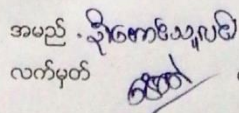 အမည် - ဦးအောင်သူလင်း
လက်မှတ်